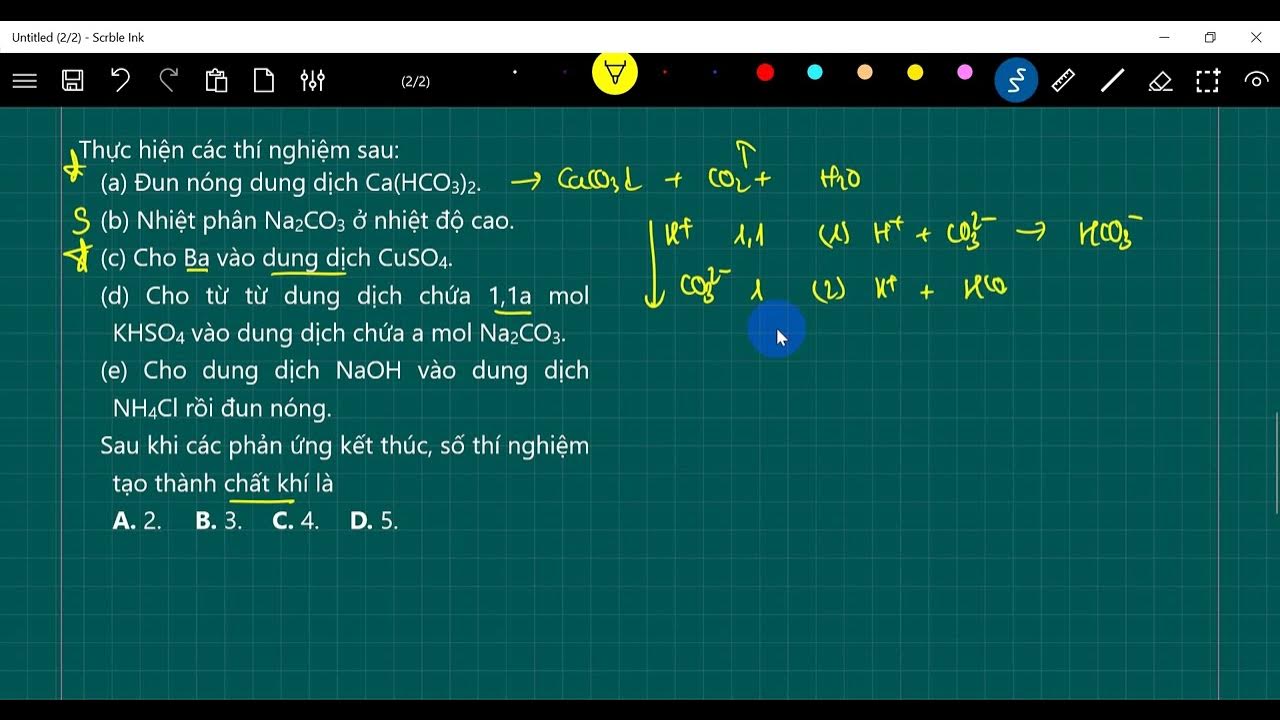 Untitled (2/2) - Scrble Ink
(2/2)
Thực hiện các thí nghiệm sau:
(a) Đun nóng dung dịch Ca(HCO₃)₂. → CaCO₃↓ + CO₂↑ + H₂O
S (b) Nhiệt phân Na₂CO₃ ở nhiệt độ cao.
H⁺ 1,1 (1) H⁺ + CO₃²⁻ → HCO₃⁻
(c) Cho Ba vào dung dịch CuSO₄.
CO₃²⁻ 1 (2) H⁺ + HCO
(d) Cho từ từ dung dịch chứa 1,1a mol
KHSO₄ vào dung dịch chứa a mol Na₂CO₃.
(e) Cho dung dịch NaOH vào dung dịch
NH₄Cl rồi đun nóng.
Sau khi các phản ứng kết thúc, số thí nghiệm
tạo thành chất khí là
A. 2. B. 3. C. 4. D. 5.